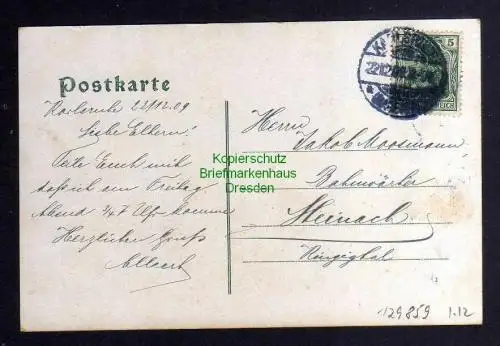 Postkarte
Karlsruhe 22/12.09
Liebe Eltern!
Teile Euch mit
daß ich am Freitag
Abend 3/4 7 Uhr komme
Herzlicher Gruß
Albert
5
Herrn
Jakob Moosmann
Bahnwärter
Steinach
Kinzigthal
Kopierschutz
Briefmarkenhaus
Dresden
129859 1.12